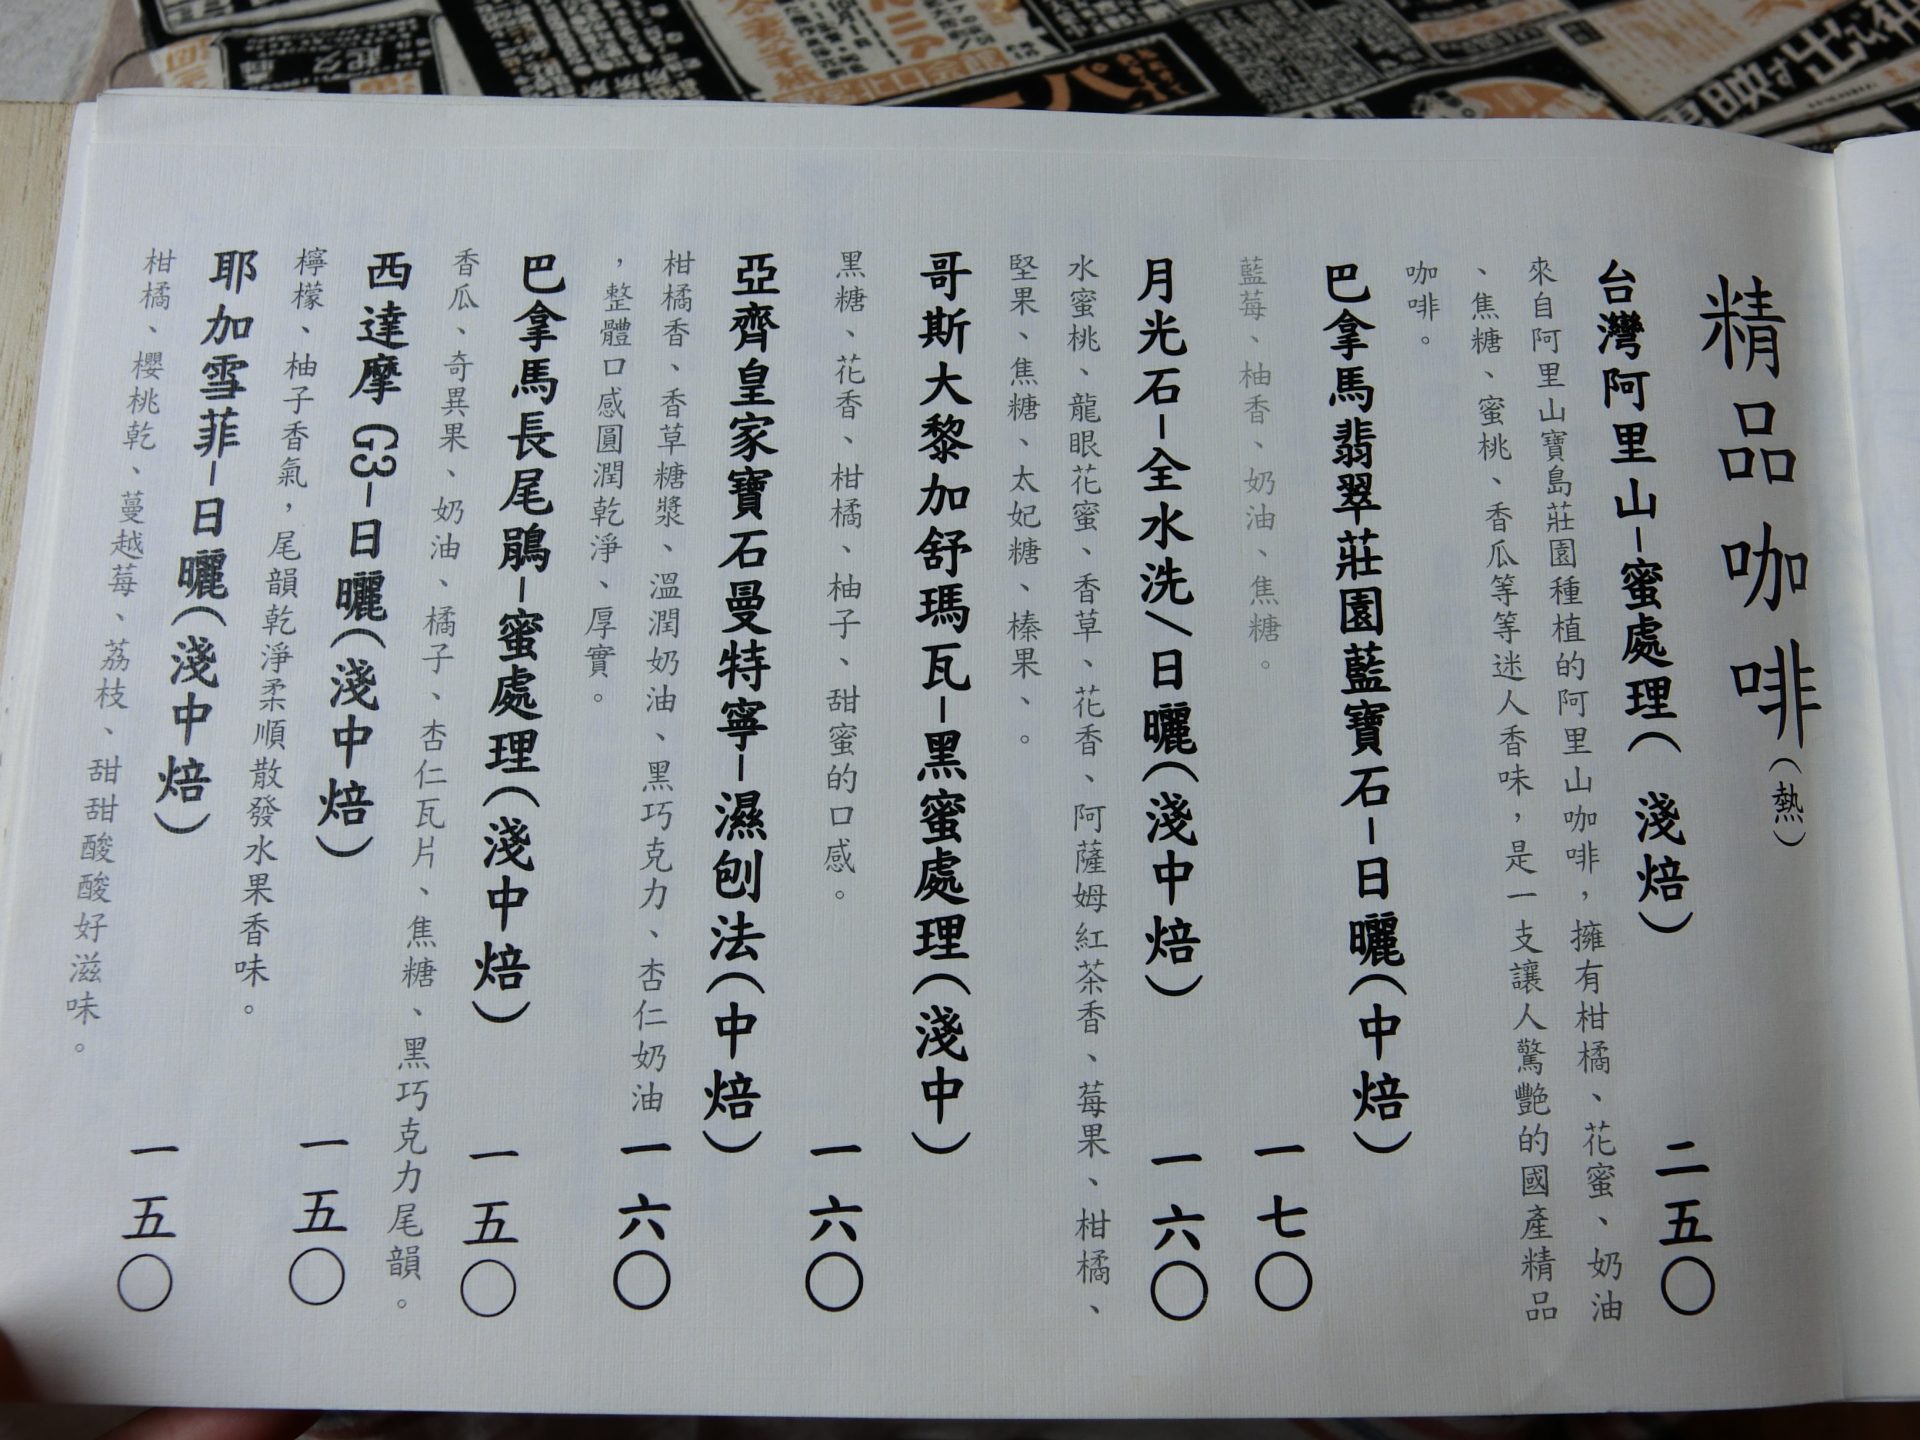 精品咖啡(熱)
台灣阿里山-蜜處理( 淺焙) 二五〇
來自阿里山寶島莊園種植的阿里山咖啡，擁有柑橘、花蜜、奶油
、焦糖、蜜桃、香瓜等等迷人香味，是一支讓人驚艷的國產精品
咖啡。
巴拿馬翡翠莊園藍寶石-日曬(中焙) 一七〇
藍莓、柚香、奶油、焦糖。
月光石-全水洗/日曬(淺中焙) 一六〇
水蜜桃、龍眼花蜜、香草、花香、阿薩姆紅茶香、莓果、柑橘、
堅果、焦糖、太妃糖、榛果、。
哥斯大黎加舒瑪瓦-黑蜜處理(淺中) 一六〇
黑糖、花香、柑橘、柚子、甜蜜的口感。
亞齊皇家寶石曼特寧-濕刨法(中焙) 一六〇
柑橘香、香草糖漿、溫潤奶油、黑巧克力、杏仁奶油
，整體口感圓潤乾淨、厚實。
巴拿馬長尾鵑-蜜處理(淺中焙) 一五〇
香瓜、奇異果、奶油、橘子、杏仁瓦片、焦糖、黑巧克力尾韻。
西達摩 G3-日曬(淺中焙) 一五〇
檸檬、柚子香氣，尾韻乾淨柔順散發水果香味。
耶加雪菲-日曬(淺中焙) 一五〇
柑橘、櫻桃乾、蔓越莓、荔枝、甜甜酸酸好滋味。